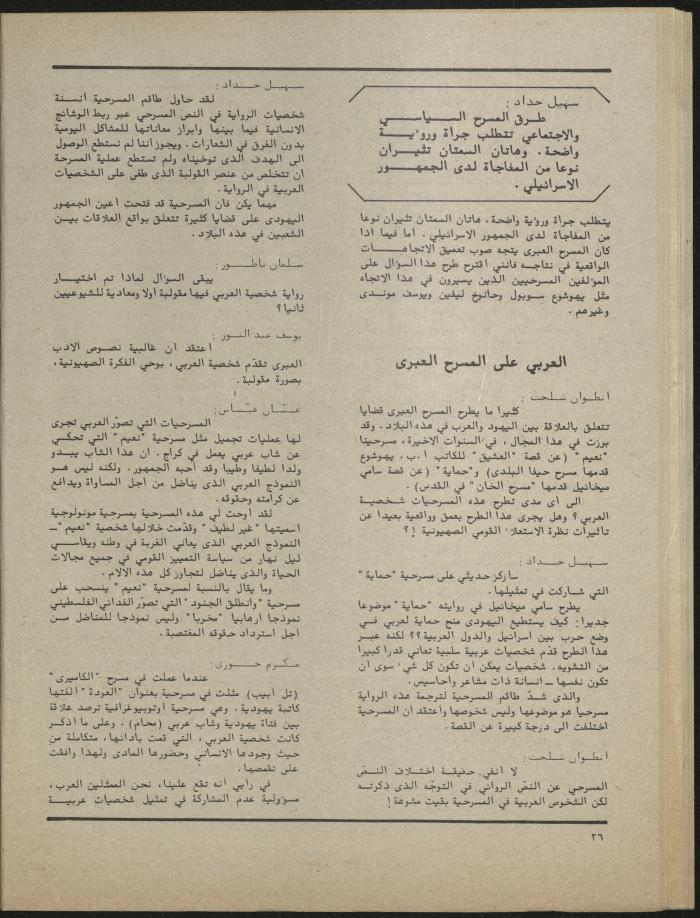 سهيل حداد :
طرق المسرح السياسي
والاجتماعي تتطلب جرأة ورؤية
واضحة . وهاتان السمتان تثيران
نوعا من المفاجأة لدى الجمهور
الاسرائيلي .
يتطلب جرأة ورؤية واضحة . هاتان السمتان تثيران نوعا
من المفاجأة لدى الجمهور الاسرائيلي . اما فيما اذا
كان المسرح العبرى يتجه صوب تعميق الاتجاهات
الواقعية في نتاجه فانني اقترح طرح هذا السؤال على
المؤلفين المسرحيين الذين يسيرون في هذا الاتجاه
مثل يهوشوع سوبول وحانوخ ليفين ويوسف موندى
وغيرهم .
العربي على المسرح العبرى
أنطوان شلحت :
كثيرا ما يطرح المسرح العبرى قضايا
تتعلق بالعلاقة بين اليهود والعرب في هذه البلاد . وقد
برزت في هذا المجال ، في السنوات الاخيرة ، مسرحيتا
"نعيم" (عن قصة "العشيق" للكاتب أ.ب. يهوشوع
قدمها مسرح حيفا البلدى) و"حماية" (عن قصة سامي
ميخائيل قدمها "مسرح الخان" في القدس) .
الى أى مدى تطرح هذه المسرحيات شخصية
العربي ؟ وهل يجرى هذا الطرح بعمق وواقعية بعيدا عن
تأثيرات نظرة الاستعلاء القومي الصهيونية !؟
سهيل حداد :
سأركز حديثي على مسرحية "حماية"
التي شاركت في تمثيلها .
يطرح سامي ميخائيل في روايته "حماية" موضوعا
جديرا : كيف يستطيع اليهودى منح حماية لعربي في
وضع حرب بين اسرائيل والدول العربية ؟؟ لكنه عبر
هذا الطرح قدّم شخصيات عربية سلبية تعاني قدرا كبيرا
من التشويه . شخصيات يمكن أن تكون كل شيء سوى ان
تكون نفسها ــ انسانة ذات مشاعر واحاسيس .
والذى شدّ طاقم المسرحية لترجمة هذه الرواية
مسرحيا هو موضوعها وليس شخوصها وأعتقد ان المسرحية
اختلفت الى درجة كبيرة عن القصة .
أنطوان شلحت :
لا أنفي حقيقة اختلاف النص
المسرحي عن النصّ الروائي في التوجّه الذى ذكرته
لكن الشخوص العربية في المسرحية بقيت مشوهة !
سهيل حداد :
لقد حاول طاقم المسرحية أنسنة
شخصيات الرواية في النص المسرحي عبر ربط الوشائج
الانسانية فيما بينها وابراز معاناتها للمشاكل اليومية
بدون الغرق في الشعارات . ويجوز أننا لم نستطع الوصول
الى الهدف الذى توخيناه ولم تستطع عملية المسرحة
ان تتخلص من عنصر القولبة الذى طغى على الشخصيات
العربية في الرواية .
مهما يكن فان المسرحية قد فتحت أعين الجمهور
اليهودى على قضايا كثيرة تتعلق بواقع العلاقات بين
الشعبين في هذه البلاد .
سلمان ناطور :
يبقى السؤال لماذا تم اختيار
رواية شخصية العربي فيها مقولبة أولا ومعادية للشيوعيين
ثانيا ؟
يوسف عبد النور :
أعتقد ان غالبية نصوص الادب
العبرى تقدّم شخصية العربي ، بوحي الفكرة الصهيونية ،
بصورة مقولبة .
غسّان عبّاس :
المسرحيات التي تصوّر العربي تجرى
لها عمليات تجميل مثل مسرحية "نعيم" التي تحكي
عن شاب عربي يعمل في كراج . ان هذا الشاب يبدو
ولدا لطيفا وطيبا وقد أحبه الجمهور . ولكنه ليس هو
النموذج العربي الذى يناضل من أجل المساواة ويدافع
عن كرامته وحقوقه .
لقد أوحت لي هذه المسرحية بمسرحية مونولوجية
اسميتها "غير لطيف" وقدّمت خلالها شخصية "نعيم" ــ
النموذج العربي الذى يعاني الغربة في وطنه ويقاسي
ليل نهار من سياسة التمييز القومي في جميع مجالات
الحياة والذى يناضل لتجاوز كل هذه الالام .
وما يقال بالنسبة لمسرحية "نعيم" ينسحب على
مسرحية "وانطلق الجنود" التي تصوّر الفدائي الفلسطيني
نموذجا ارهابيا "مخربا" وليس نموذجا للمناضل من
أجل استرداد حقوقه المغتصبة .
مكرم خوري :
عندما عملت في مسرح "الكاميرى"
(تل أبيب) مثلت في مسرحية بعنوان "العودة" ألفتها
كاتبة يهودية . وهي مسرحية أوتوبيوغرافية ترصد علاقة
بين فتاة يهودية وشاب عربي (محام) . وعلى ما أذكر
كانت شخصية العربي ، التي قمت بأدائها ، متكاملة من
حيث وجودها الانساني وحضورها المادى ولهذا وافقت
على تقمصها .
في رأيي أنه تقع علينا ، نحن الممثلين العرب ،
مسؤولية عدم المشاركة في تمثيل شخصيات عربية
٢٦